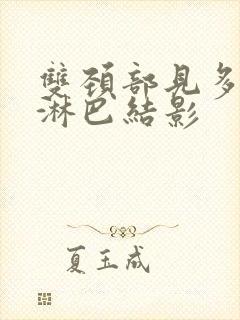 雙頚部見多
淋巴結影
夏玉成